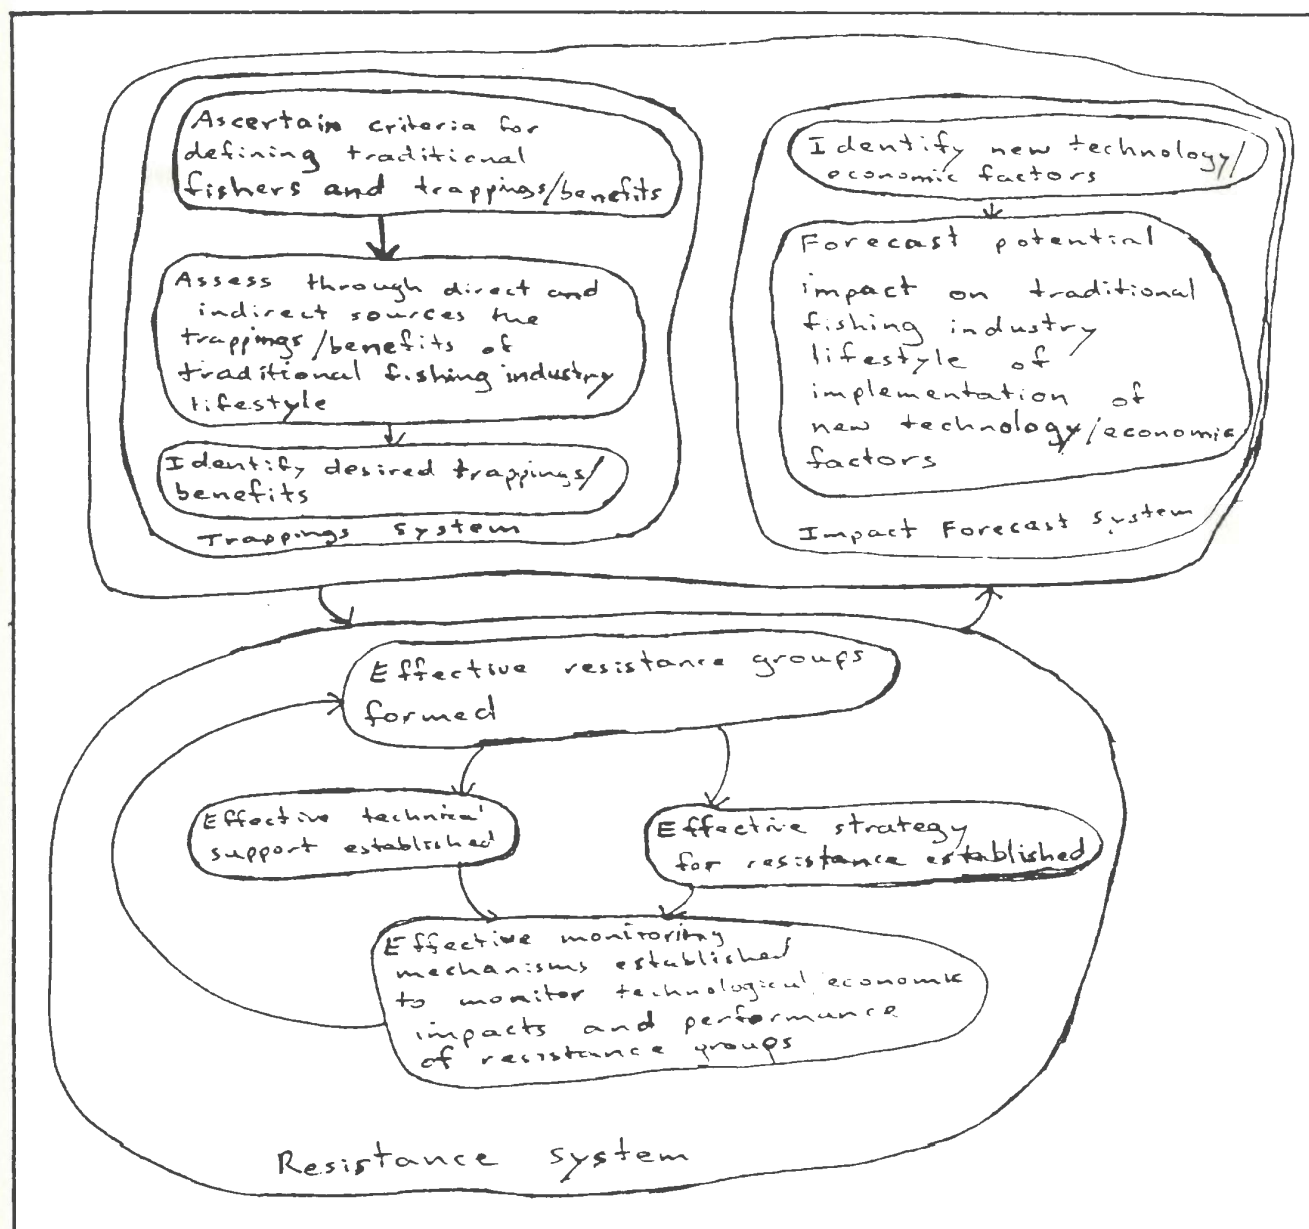 Ascertain criteria for
defining traditional
fishers and trappings/benefits
Assess through direct and
indirect sources the
trappings/benefits of
traditional fishing industry
lifestyle
Identify desired trappings/
benefits
Trappings System
Identify new technology/
economic factors
Forecast potential
impact on traditional
fishing industry
lifestyle of
implementation of
new technology/economic
factors
Impact Forecast System
Effective resistance groups
formed
Effective technical
support established
Effective strategy
for resistance established
Effective monitoring
mechanisms established
to monitor technological/economic
impacts and performance
of resistance groups
Resistance System